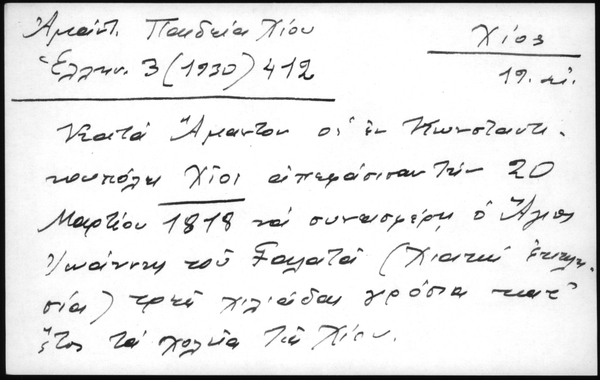 Ἄμαντ. Παιδεία Χίου
Χίος
Ἑλλην. 3 (1930) 412
19. αἰ.
Κατὰ Ἄμαντον οἱ ἐν Κωνσταντι-
νουπόλει Χῖοι ἀπεφάσισαν τὴν 20
Μαρτίου 1818 νὰ συνεισφέρῃ ὁ Ἅγιος
Ἰωάννης τοῦ Γαλατᾶ (Χιακὴ ἐκκλη-
σία) τρεῖς χιλιάδας γρόσια κατ'
ἔτος τὰ σχολεῖα τῆς Χίου.